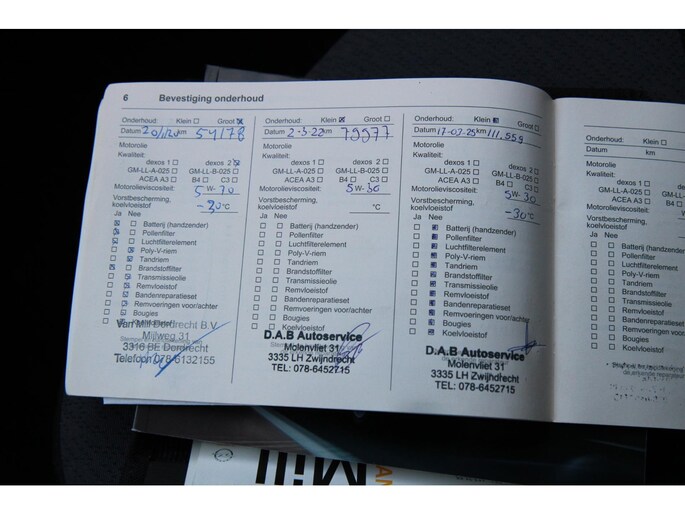 6 Bevestiging onderhoud
Onderhoud: Klein Groot
Datum km 54178
Motorolie
Kwaliteit:
dexos 1 dexos 2
GM-LL-A-025 GM-LL-B-025
ACEA A3 B4 C3
Motorolieviscositeit: 5 W-
Vorstbescherming,
koelvloeistof -30 °C
Ja Nee
Batterij (handzender)
Pollenfilter
Luchtfilterelement
Poly-V-riem
Tandriem
Brandstoffilter
Transmissieolie
Remvloeistof
Bandenreparatieset
Remvoeringen voor/achter
Bougies
Van Mill Dordrecht B.V.
Millweg 31
3316 BE Dordrecht
Telefoon 078-6132155
Onderhoud: Klein Groot
Datum 2-3-22 km 79977
Motorolie
Kwaliteit:
dexos 1 dexos 2
GM-LL-A-025 GM-LL-B-025
ACEA A3 B4 C3
Motorolieviscositeit: 5W-30
Vorstbescherming,
koelvloeistof °C
Ja Nee
Batterij (handzender)
Pollenfilter
Luchtfilterelement
Poly-V-riem
Tandriem
Brandstoffilter
Transmissieolie
Remvloeistof
Bandenreparatieset
Remvoeringen voor/achter
Bougies
Koelvloeistof
D.A.B Autoservice
Molenvliet 31
3335 LH Zwijndrecht
TEL: 078-6452715
Onderhoud: Klein Groot
Datum 17-03-25 km 111.559
Motorolie
Kwaliteit:
dexos 1 dexos 2
GM-LL-A-025 GM-LL-B-025
ACEA A3 B4 C3
Motorolieviscositeit: 5W-30
Vorstbescherming,
koelvloeistof -30 °C
Ja Nee
Batterij (handzender)
Pollenfilter
Luchtfilterelement
Poly-V-riem
Tandriem
Brandstoffilter
Transmissieolie
Remvloeistof
Bandenreparatieset
Remvoeringen voor/achter
Bougies
Koelvloeistof
D.A.B Autoservice
Molenvliet 31
3335 LH Zwijndrecht
TEL: 078-6452715
Onderhoud: Klein Groot
Datum km
Motorolie
Kwaliteit:
dexos 1
GM-LL-A-025
ACEA A3 B4
Motorolieviscositeit:
Vorstbescherming,
koelvloeistof
Ja Nee
Batterij (handzender)
Pollenfilter
Luchtfilterelement
Poly-V-riem
Tandriem
Brandstoffilter
Transmissieolie
Remvloeistof
Bandenreparatieset
Remvoeringen voor/achter
Bougies
Koelvloeistof
Mill